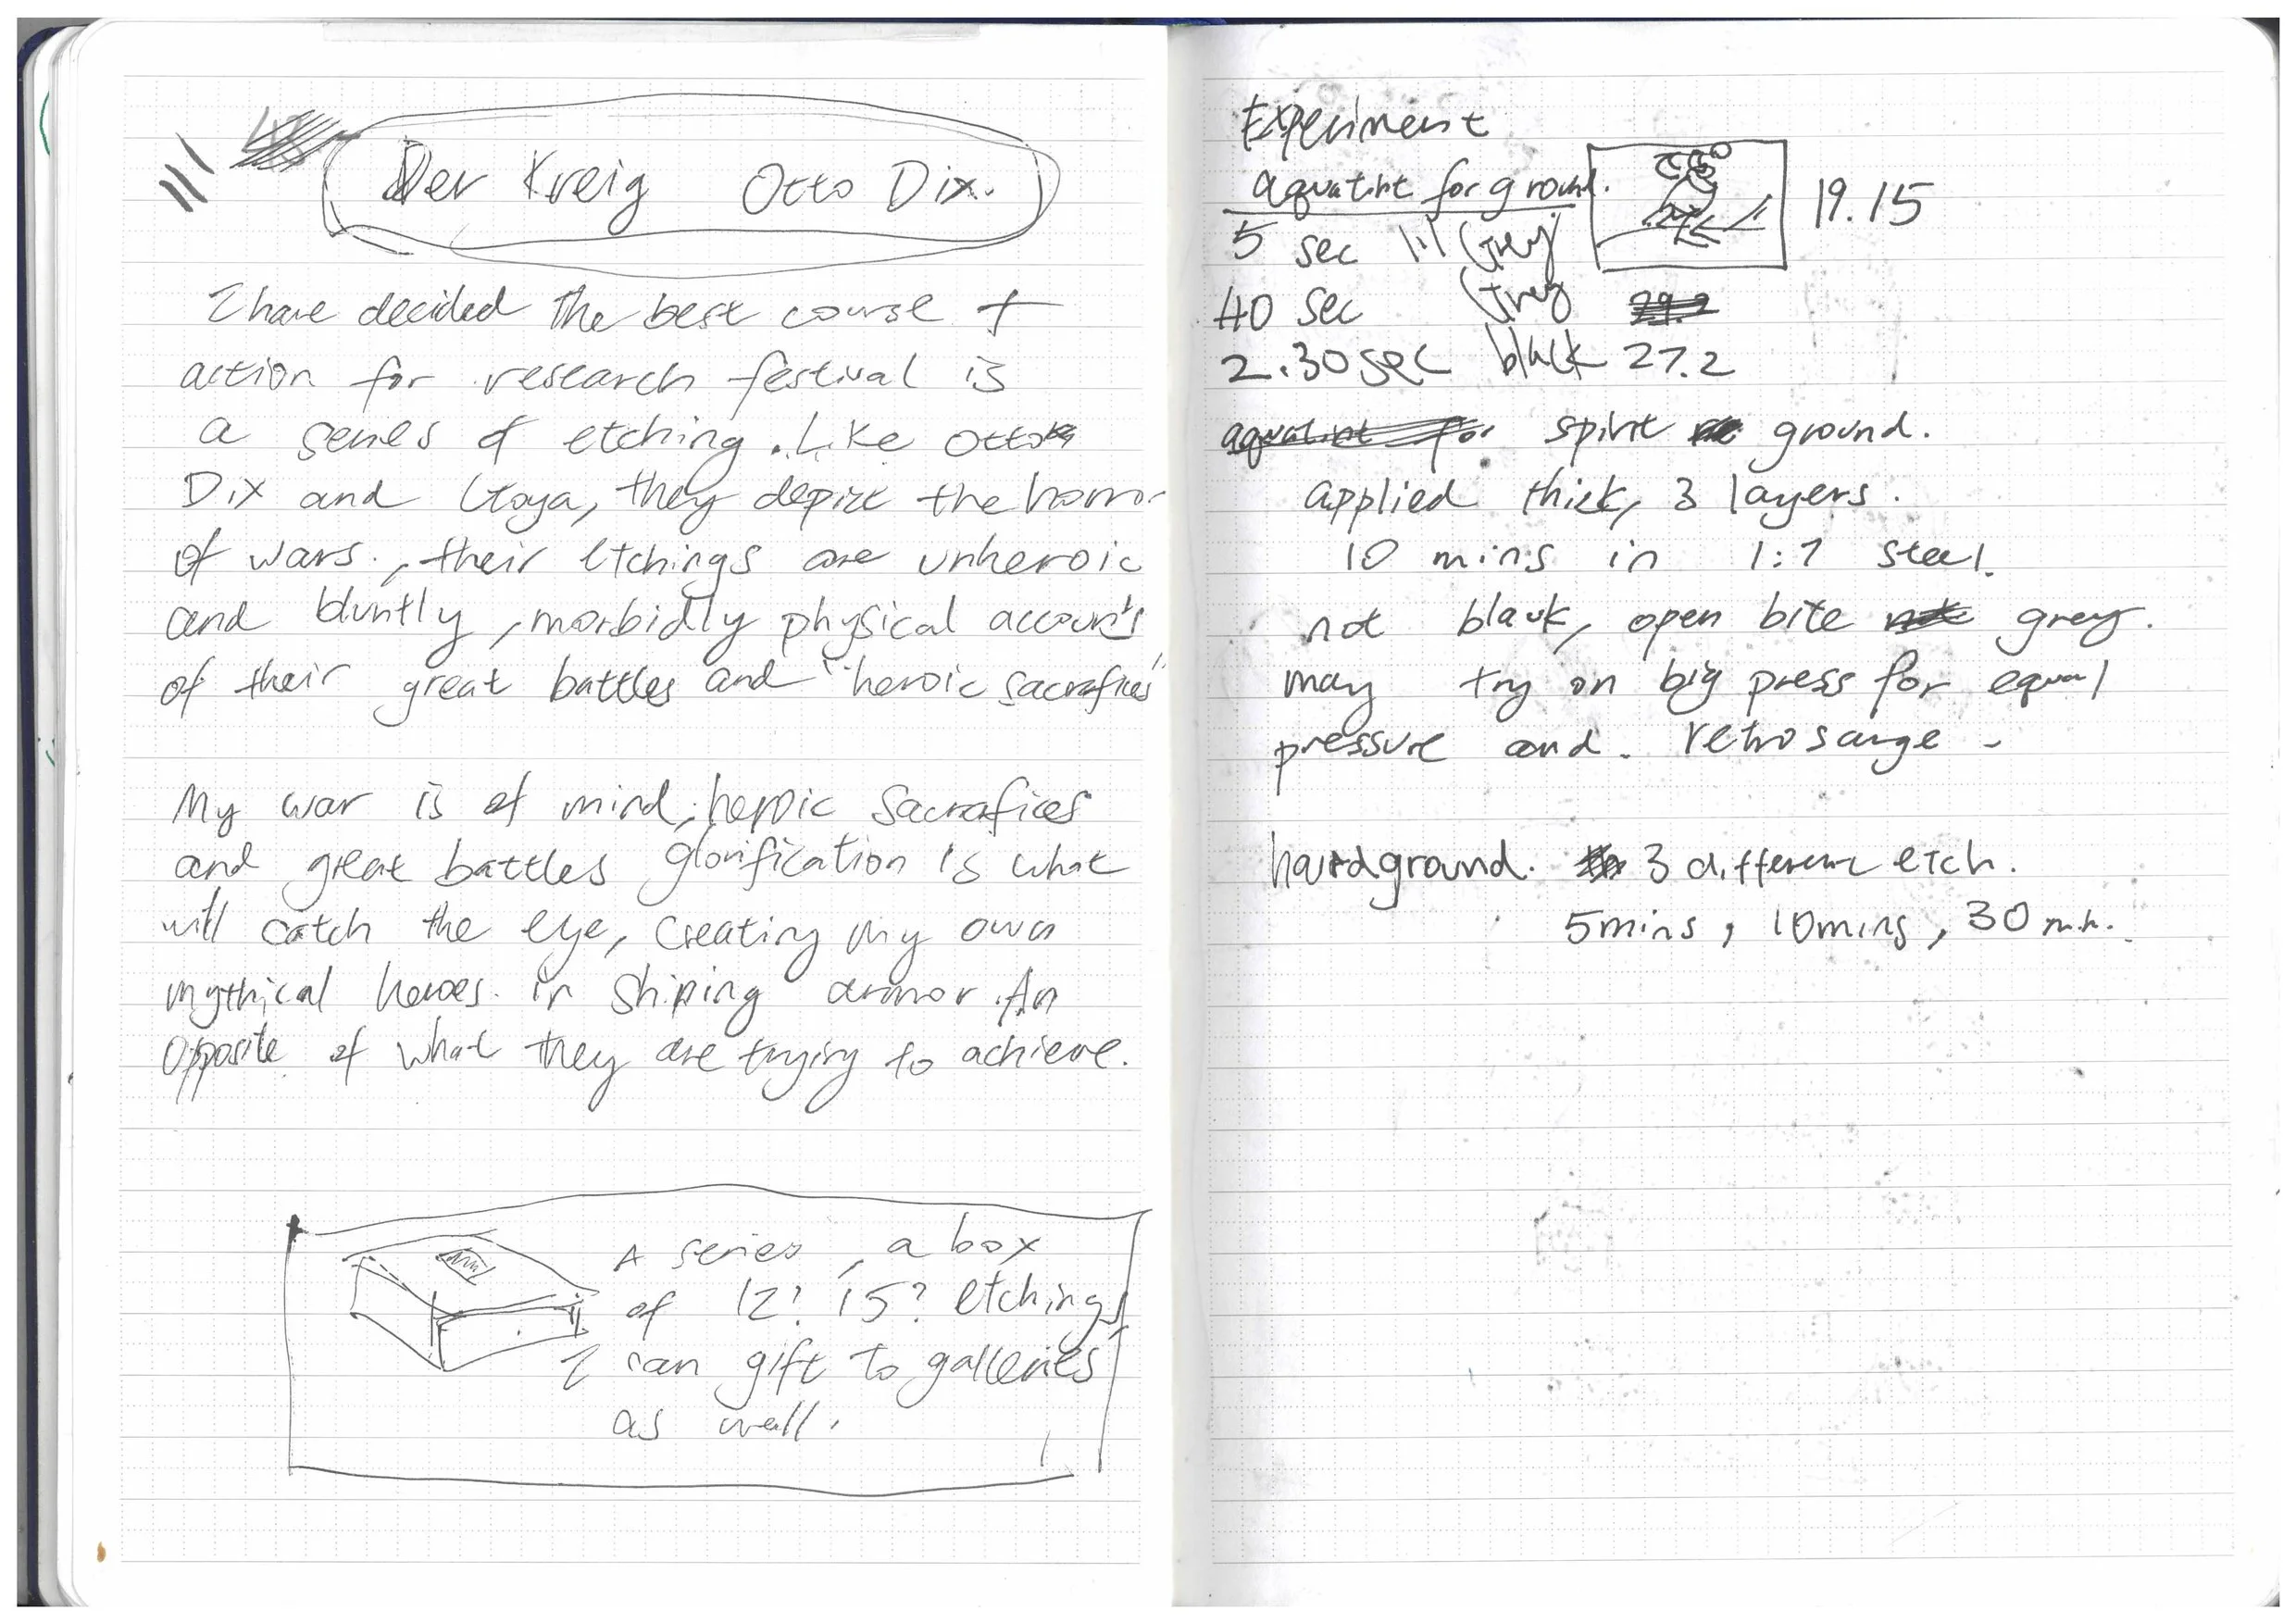 Der Kreig Otto Dix.
I have decided the best course of
action for research festival is
a series of etching. Like Otto
Dix and Goya, they depict the horror
of wars., their etchings are unheroic
and bluntly, morbidly physical accounts
of their great battles and "heroic sacrafices"
My war is of mind, heroic sacrafices
and great battles glorification is what
will catch the eye, creating my own
mythical heroes. in shining armor. An
opposite of what they are trying to achieve.
A series, a box
of 12? 15? etchings
I can gift to galleries
as well.
Experiment
aquatint for ground.
19.15
5 sec 1:1 Grey
40 sec Grey 29.2
2.30 sec black 27.2
aquatint for spirit ground.
applied thick, 3 layers.
10 mins in 1:7 steel.
not black, open bite not grey.
may try on big press for equal
pressure and.
hardground. 3 different etch.
5mins, 10mins, 30 min.